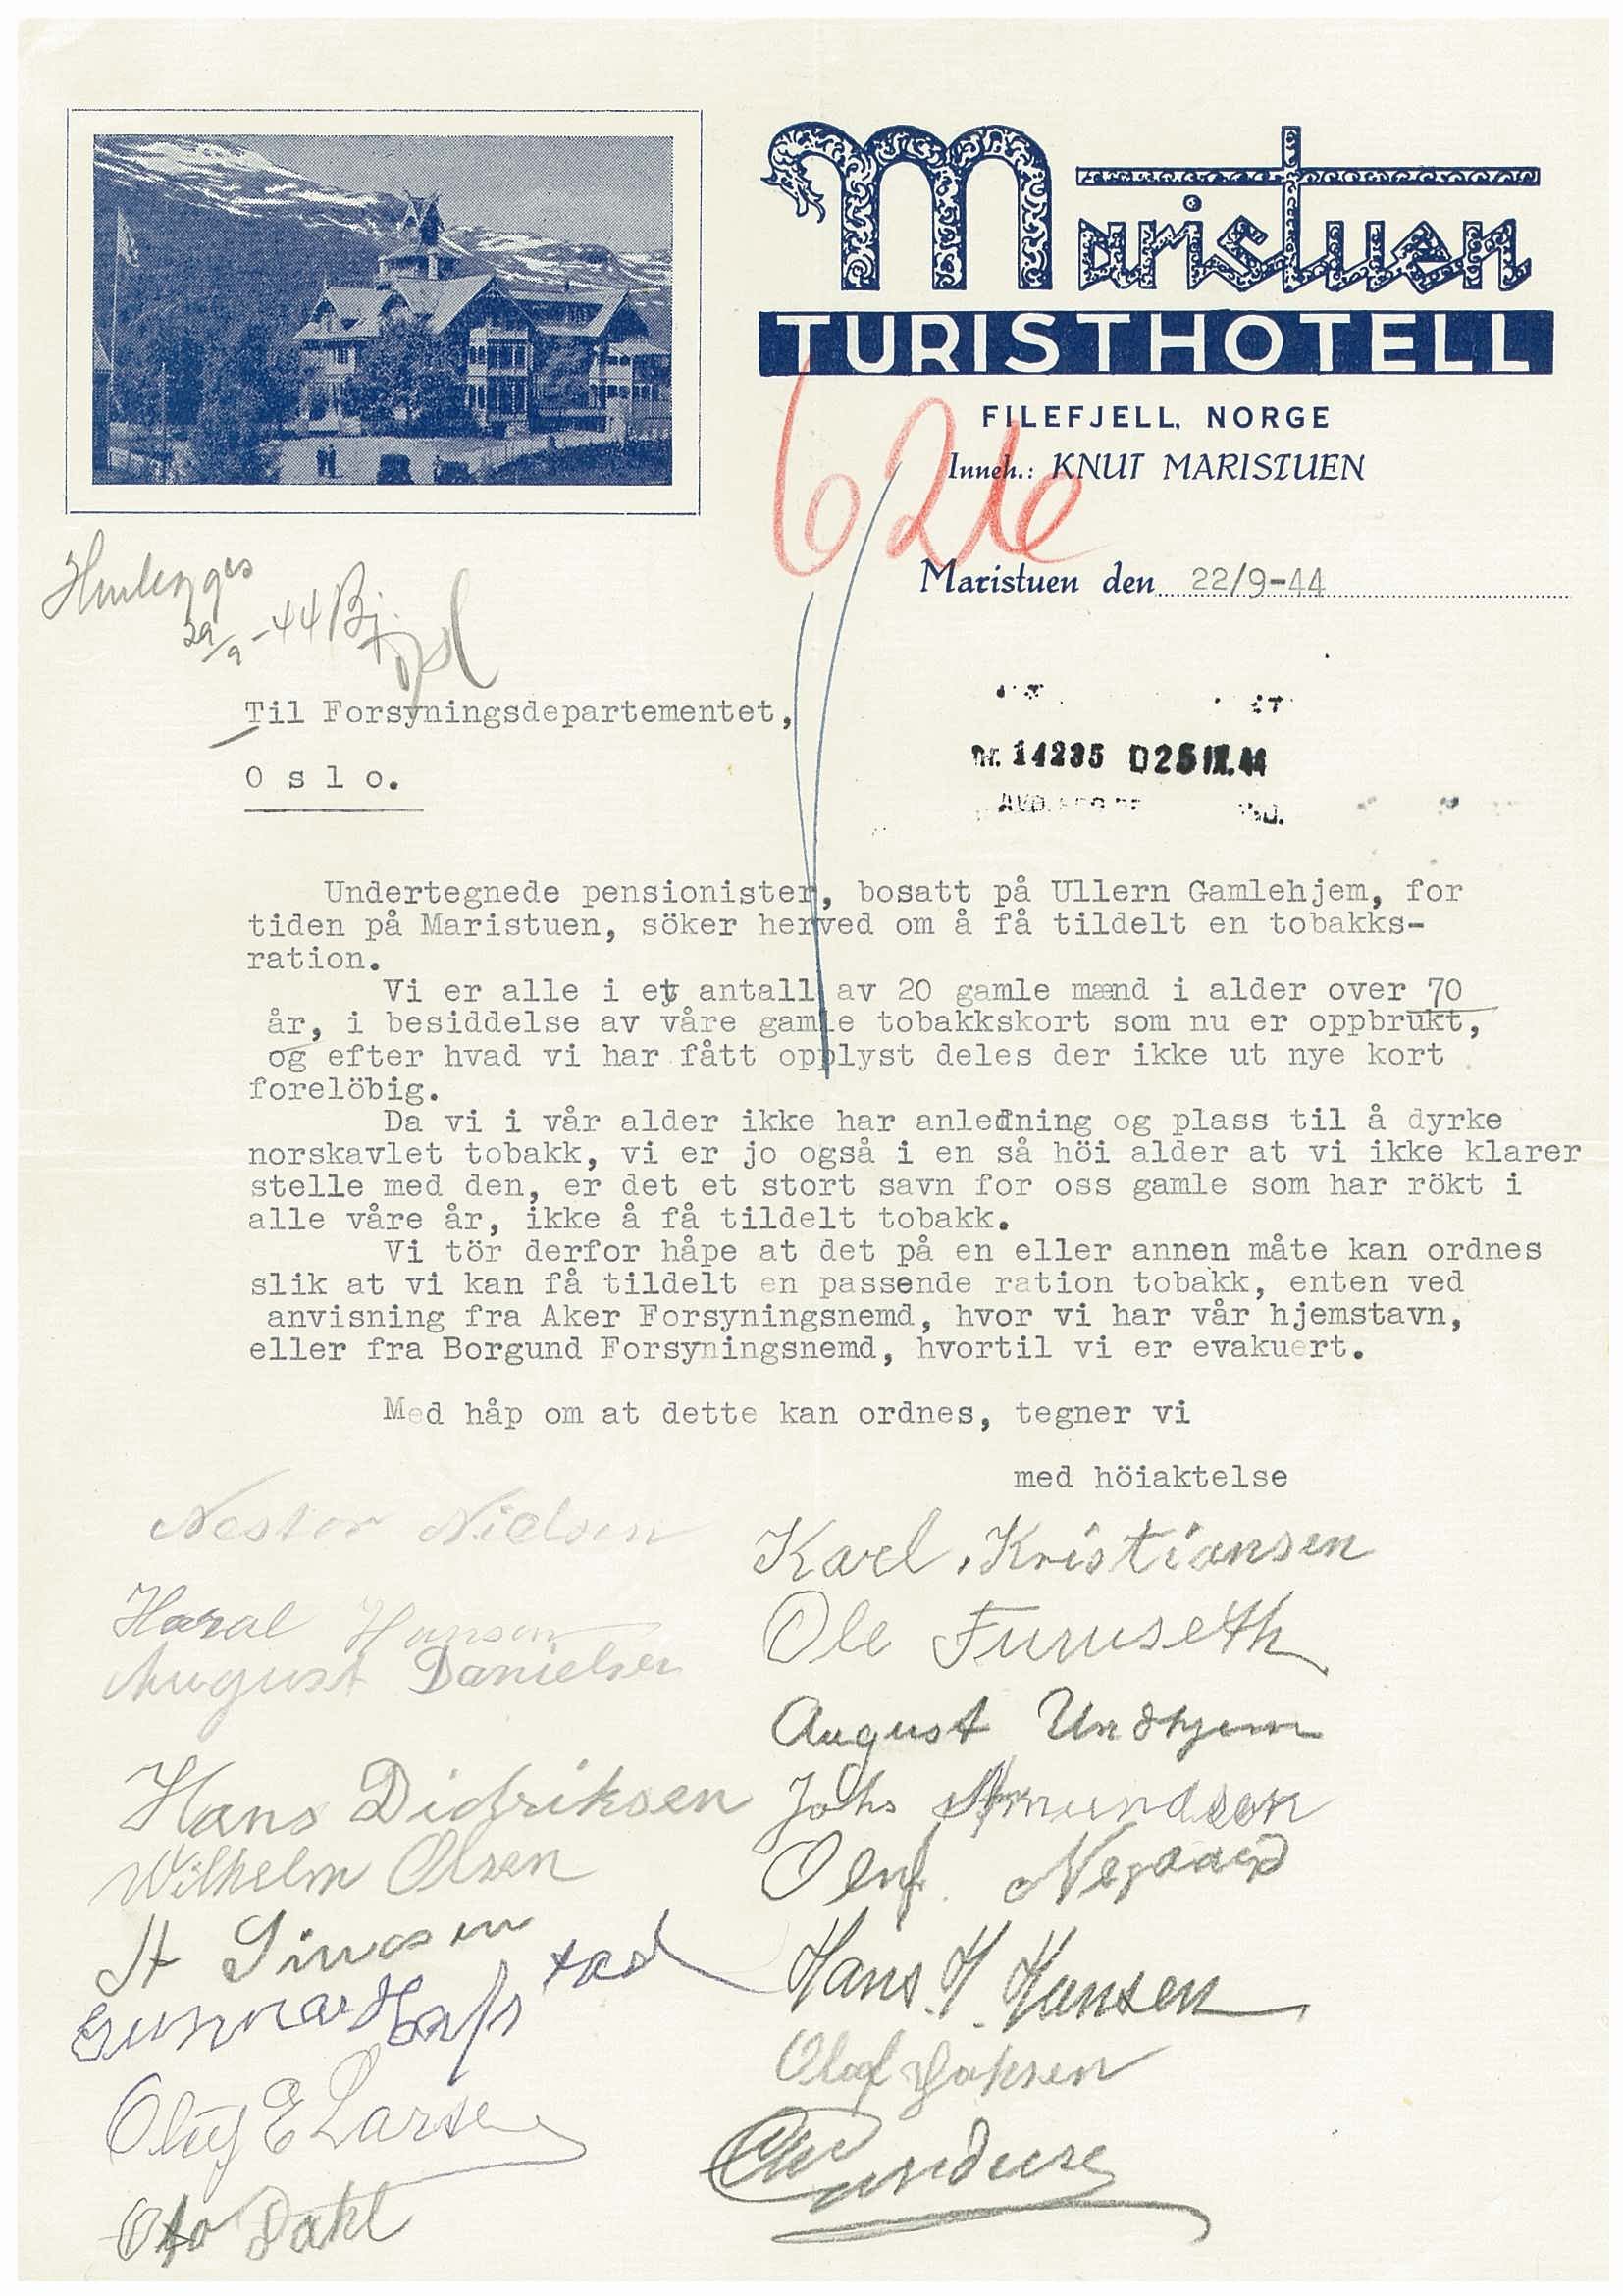 Maristuen
TURISTHOTELL
FILEFJELL, NORGE
Inneh.: KNUT MARISTUEN
626
Maristuen den 22/9-44
29/9-44 Bj.
Til Forsyningsdepartementet,
O s l o.
Nr. 14235 D25 IX. 44
Undertegnede pensionister, bosatt på Ullern Gamlehjem, for
tiden på Maristuen, söker herved om å få tildelt en tobakks-
ration.
Vi er alle i et antall av 20 gamle mænd i alder over 70
år, i besiddelse av våre gamle tobakkskort som nu er oppbrukt,
og efter hvad vi har fått opplyst deles der ikke ut nye kort
forelöbig.
Da vi i vår alder ikke har anledning og plass til å dyrke
norskavlet tobakk, vi er jo også i en så höi alder at vi ikke klarer
stelle med den, er det et stort savn for oss gamle som har rökt i
alle våre år, ikke å få tildelt tobakk.
Vi tör derfor håpe at det på en eller annen måte kan ordnes
slik at vi kan få tildelt en passende ration tobakk, enten ved
anvisning fra Aker Forsyningsnemd, hvor vi har vår hjemstavn,
eller fra Borgund Forsyningsnemd, hvortil vi er evakuert.
Med håp om at dette kan ordnes, tegner vi
med höiaktelse
Nestor Nielsen
Karl Kristiansen
Haral Hansen
Ole Furuseth
August Danielsen
August Undhjem
Hans Didriksen
Johs Amundsen
Wilhelm Olsen
Oluf Nygaard
Hans H. Hansen
Gunnar Hafstad
Olaf
Oluf E Larsen
Oto Dahl